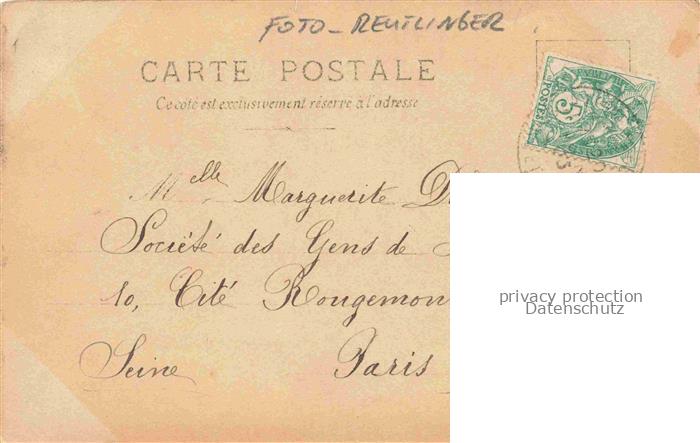 FOTO - REUTLINGER
CARTE POSTALE
Ce côté est exclusivement réservé à l'adresse
POSTES
5
Melle Marguerite
Société des Gens de
10, Cité Rougemon
Seine Paris
privacy protection
Datenschutz